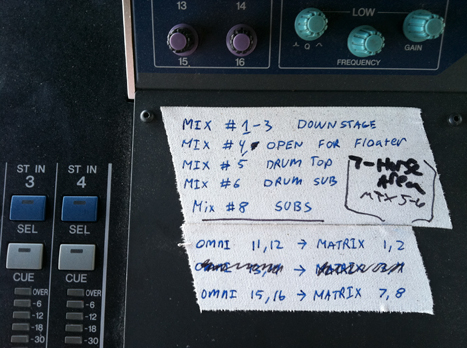 13 14
LOW
15 16
Q
FREQUENCY
GAIN
MIX # 1-3 DOWNSTAGE
MIX # 4 OPEN FOR Floater
MIX # 5 DRUM TOP
MIX # 6 DRUM SUB
Mix #8 SUBS
MIX 5-6
OMNI 11,12 → MATRIX 1,2
OMNI 15,16 → MATRIX 7,8
ST IN ST IN
3 4
SEL SEL
CUE CUE
OVER OVER
-6 -6
-12 -12
-18 -18
-30 -30